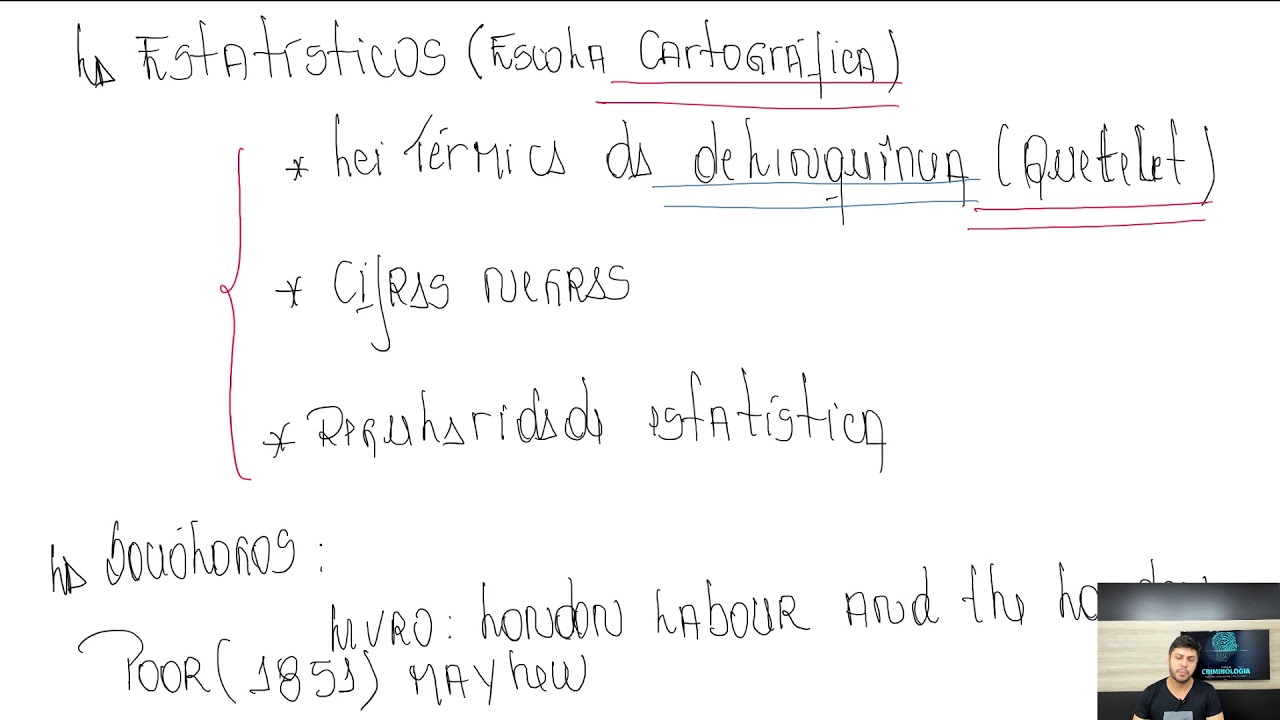 ↳ Estatísticos (Escola Cartográfica)
* Lei Térmica da delinquência (Quetelet)
* Cifras negras
* Regularidade estatística
↳ Sociólogos:
Livro: London Labour and the London
Poor (1851) Mayhew
CRIMINOLOGIA